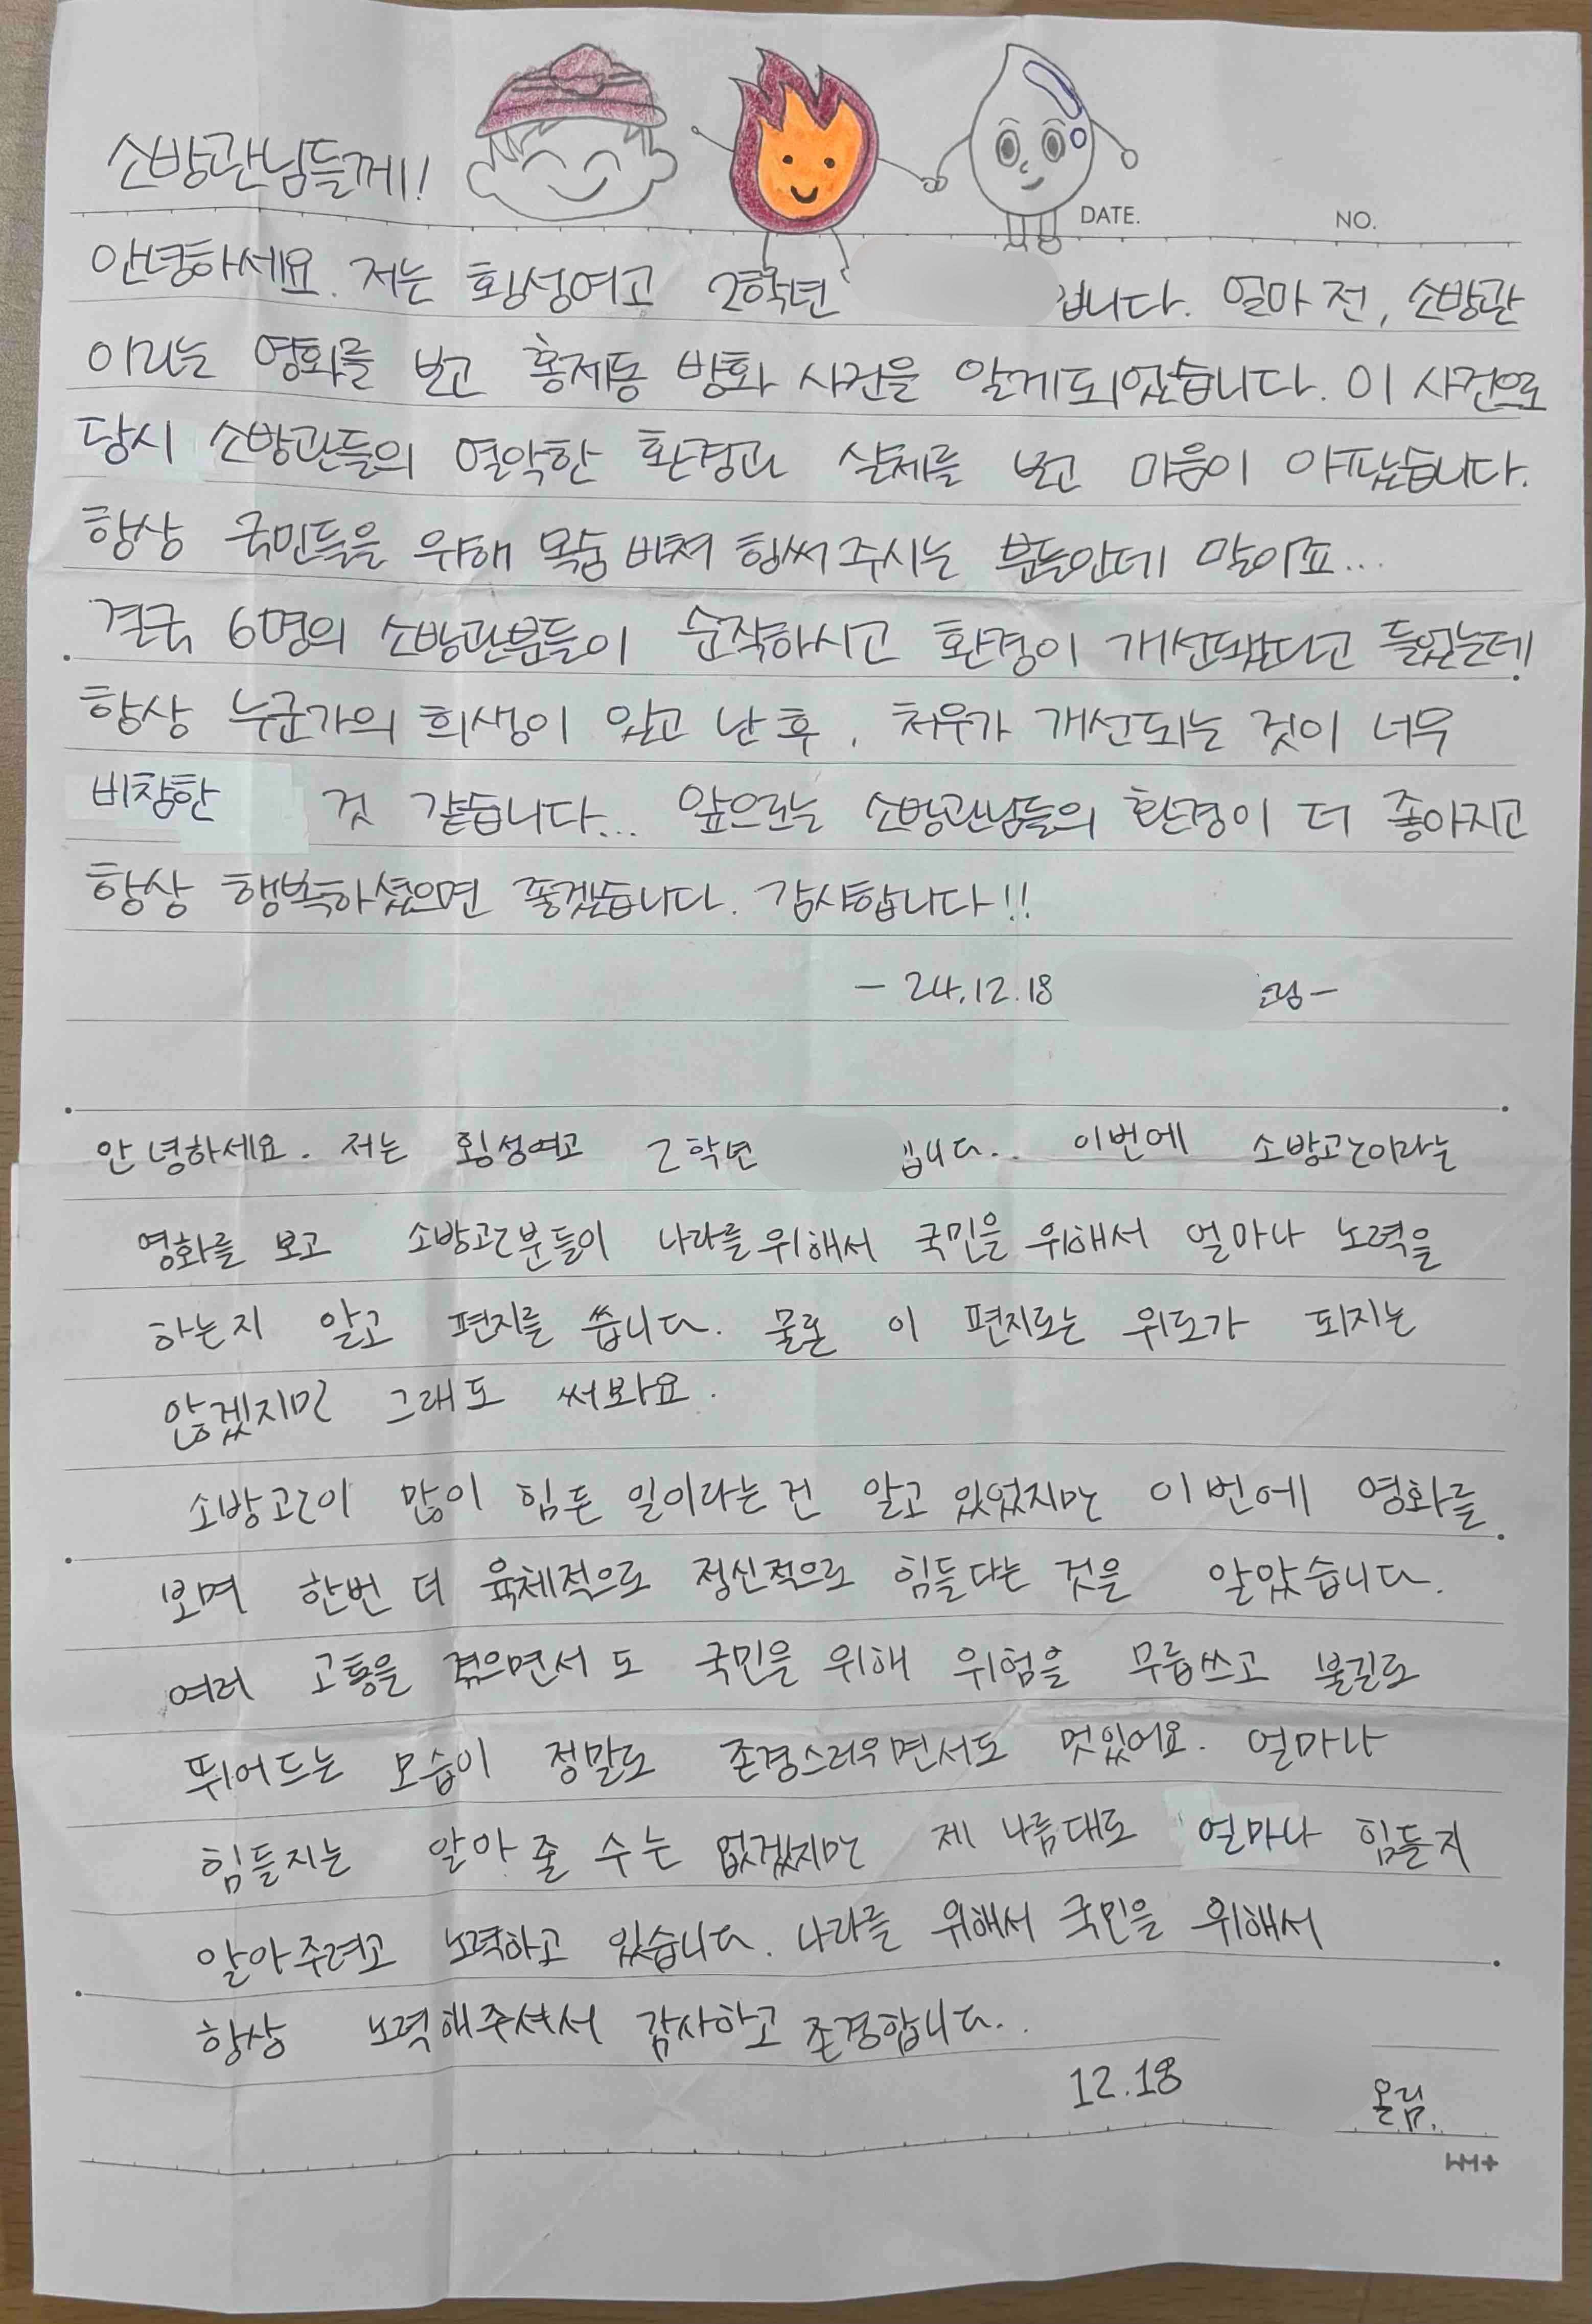 소방관님들께!
DATE.
NO.
안녕하세요. 저는 횡성여고 2학년 입니다. 얼마 전, 소방관
이라는 영화를 보고 홍제동 방화 사건을 알게되었습니다. 이 사건으로
당시 소방관들의 열악한 환경과 실체를 보고 마음이 아팠습니다.
항상 국민들을 위해 목숨 바쳐 힘써주시는 분들인데 말이죠...
결국 6명의 소방관분들이 순직하시고 환경이 개선됐다고 들었는데
항상 누군가의 희생이 있고 난 후, 처우가 개선되는 것이 너무
비참한 것 같습니다... 앞으로는 소방관님들의 환경이 더 좋아지고
항상 행복하셨으면 좋겠습니다. 감사합니다!!
- 24.12.18 올림-
안녕하세요. 저는 횡성여고 2학년 입니다.. 이번에 소방관이라는
영화를 보고 소방관분들이 나라를 위해서 국민을 위해서 얼마나 노력을
하는지 알고 편지를 씁니다. 물론 이 편지로는 위로가 되지는
않겠지만 그래도 써봐요.
소방관이 많이 힘든 일이라는건 알고 있었지만 이번에 영화를
보며 한번 더 육체적으로 정신적으로 힘들다는 것을 알았습니다.
여러 고통을 겪으면서도 국민을 위해 위험을 무릅쓰고 불길로
뛰어드는 모습이 정말로 존경스러우면서도 멋있어요. 얼마나
힘들지는 알아 줄 수는 없겠지만 제 나름대로 얼마나 힘들지
알아주려고 노력하고 있습니다. 나라를 위해서 국민을 위해서
항상 노력해주셔서 감사하고 존경합니다..
12.18 올림.